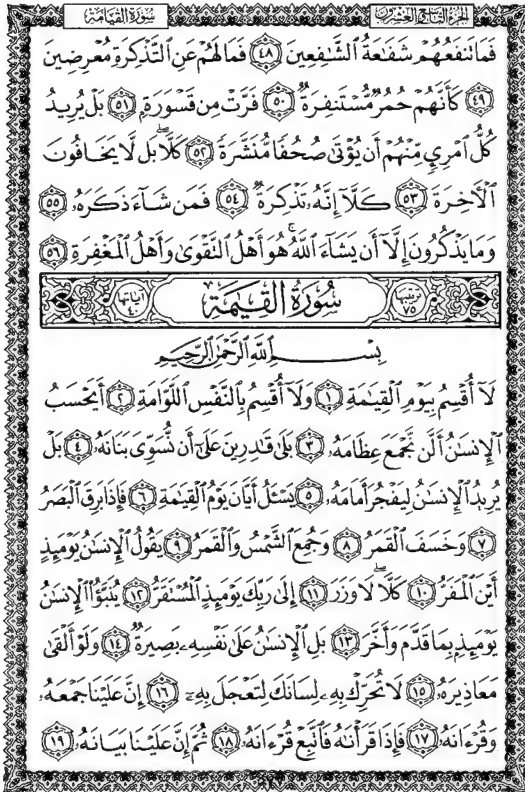 الجزء التاسع والعشرون
سورة القيامة
فَمَا تَنفَعُهُمْ شَفَٰعَةُ ٱلشَّٰفِعِينَ ٤٨ فَمَا لَهُمْ عَنِ ٱلتَّذْكِرَةِ مُعْرِضِينَ
٤٩ كَأَنَّهُمْ حُمُرٌ مُّسْتَنفِرَةٌ ٥٠ فَرَّتْ مِن قَسْوَرَةٍۭ ٥١ بَلْ يُرِيدُ
كُلُّ ٱمْرِئٍ مِّنْهُمْ أَن يُؤْتَىٰ صُحُفًا مُّنَشَّرَةً ٥٢ كَلَّا ۖ بَل لَّا يَخَافُونَ
ٱلْأَخِرَةَ ٥٣ كَلَّآ إِنَّهُۥ تَذْكِرَةٌ ٥٤ فَمَن شَآءَ ذَكَرَهُۥ ٥٥
وَمَا يَذْكُرُونَ إِلَّآ أَن يَشَآءَ ٱللَّهُ ۚ هُوَ أَهْلُ ٱلتَّقْوَىٰ وَأَهْلُ ٱلْمَغْفِرَةِ ٥٦
ترتيبها ٧٥ سُورَةُ القِيَٰمَةِ آياتها ٤٠
بِسْمِ ٱللَّهِ ٱلرَّحْمَٰنِ ٱلرَّحِيمِ
لَآ أُقْسِمُ بِيَوْمِ ٱلْقِيَٰمَةِ ١ وَلَآ أُقْسِمُ بِٱلنَّفْسِ ٱللَّوَّامَةِ ٢ أَيَحْسَبُ
ٱلْإِنسَٰنُ أَلَّن نَّجْمَعَ عِظَامَهُۥ ٣ بَلَىٰ قَٰدِرِينَ عَلَىٰٓ أَن نُّسَوِّىَ بَنَانَهُۥ ٤ بَلْ
يُرِيدُ ٱلْإِنسَٰنُ لِيَفْجُرَ أَمَامَهُۥ ٥ يَسْـَٔلُ أَيَّانَ يَوْمُ ٱلْقِيَٰمَةِ ٦ فَإِذَا بَرِقَ ٱلْبَصَرُ
٧ وَخَسَفَ ٱلْقَمَرُ ٨ وَجُمِعَ ٱلشَّمْسُ وَٱلْقَمَرُ ٩ يَقُولُ ٱلْإِنسَٰنُ يَوْمَئِذٍ
أَيْنَ ٱلْمَفَرُّ ١٠ كَلَّا لَا وَزَرَ ١١ إِلَىٰ رَبِّكَ يَوْمَئِذٍ ٱلْمُسْتَقَرُّ ١٢ يُنَبَّؤُا۟ ٱلْإِنسَٰنُ
يَوْمَئِذٍۭ بِمَا قَدَّمَ وَأَخَّرَ ١٣ بَلِ ٱلْإِنسَٰنُ عَلَىٰ نَفْسِهِۦ بَصِيرَةٌ ١٤ وَلَوْ أَلْقَىٰ
مَعَاذِيرَهُۥ ١٥ لَا تُحَرِّكْ بِهِۦ لِسَانَكَ لِتَعْجَلَ بِهِۦٓ ١٦ إِنَّ عَلَيْنَا جَمْعَهُۥ
وَقُرْءَانَهُۥ ١٧ فَإِذَا قَرَأْنَٰهُ فَٱتَّبِعْ قُرْءَانَهُۥ ١٨ ثُمَّ إِنَّ عَلَيْنَا بَيَانَهُۥ ١٩